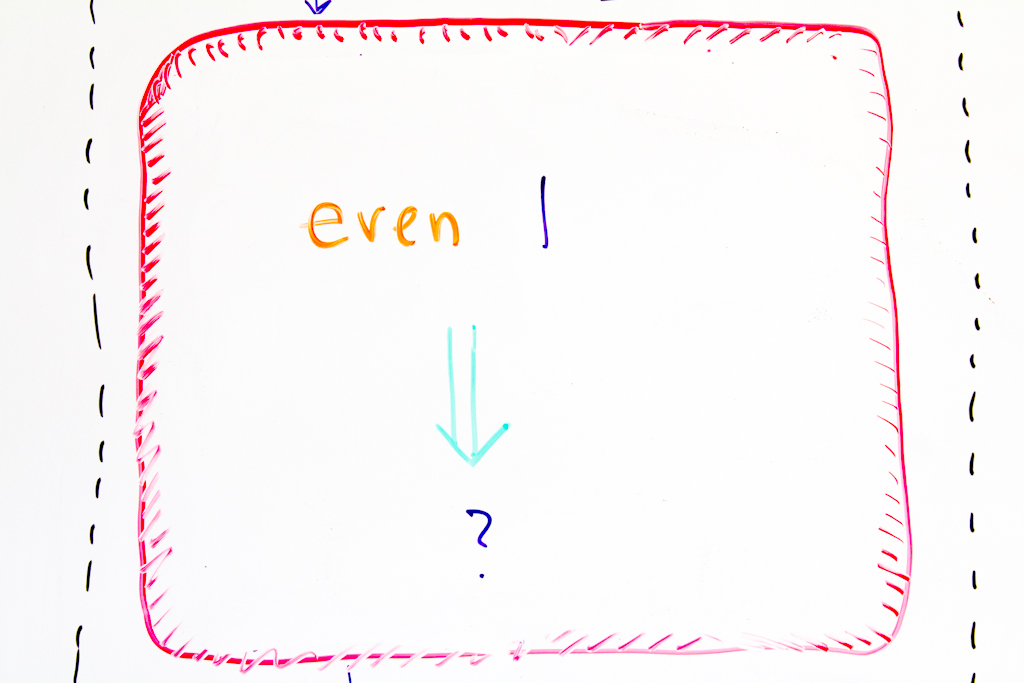 even |
?